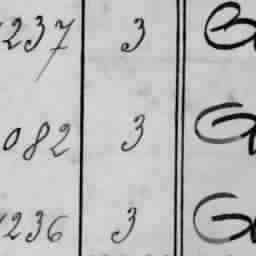 237 3
082 3
236 3